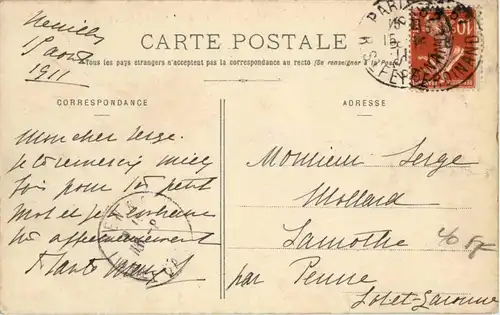 Neuilly
15 aout
1911
CARTE POSTALE
Tous les pays étrangers n'acceptent pas la correspondance au recto (Se renseigner à la Poste)
CORRESPONDANCE
ADRESSE
Mon cher Serge.
Je te remercie mille
fois pour ton petit
mot et je t'embrasse
très affectueusement
Monsieur Serge
Mollard
Lamothe
par Penne
Lot-et-Garonne
PARIS
10